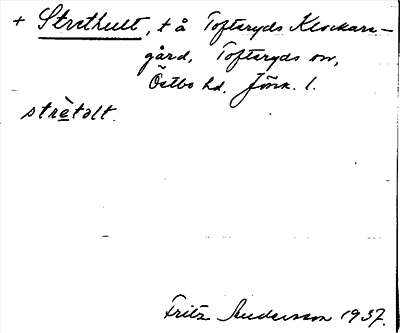 + Strethult, t å Toftaryds Klockare-
gård, Toftaryds sn,
Östbo hd, Jönk. l.
strètult.
Fritz Andersson 1937.